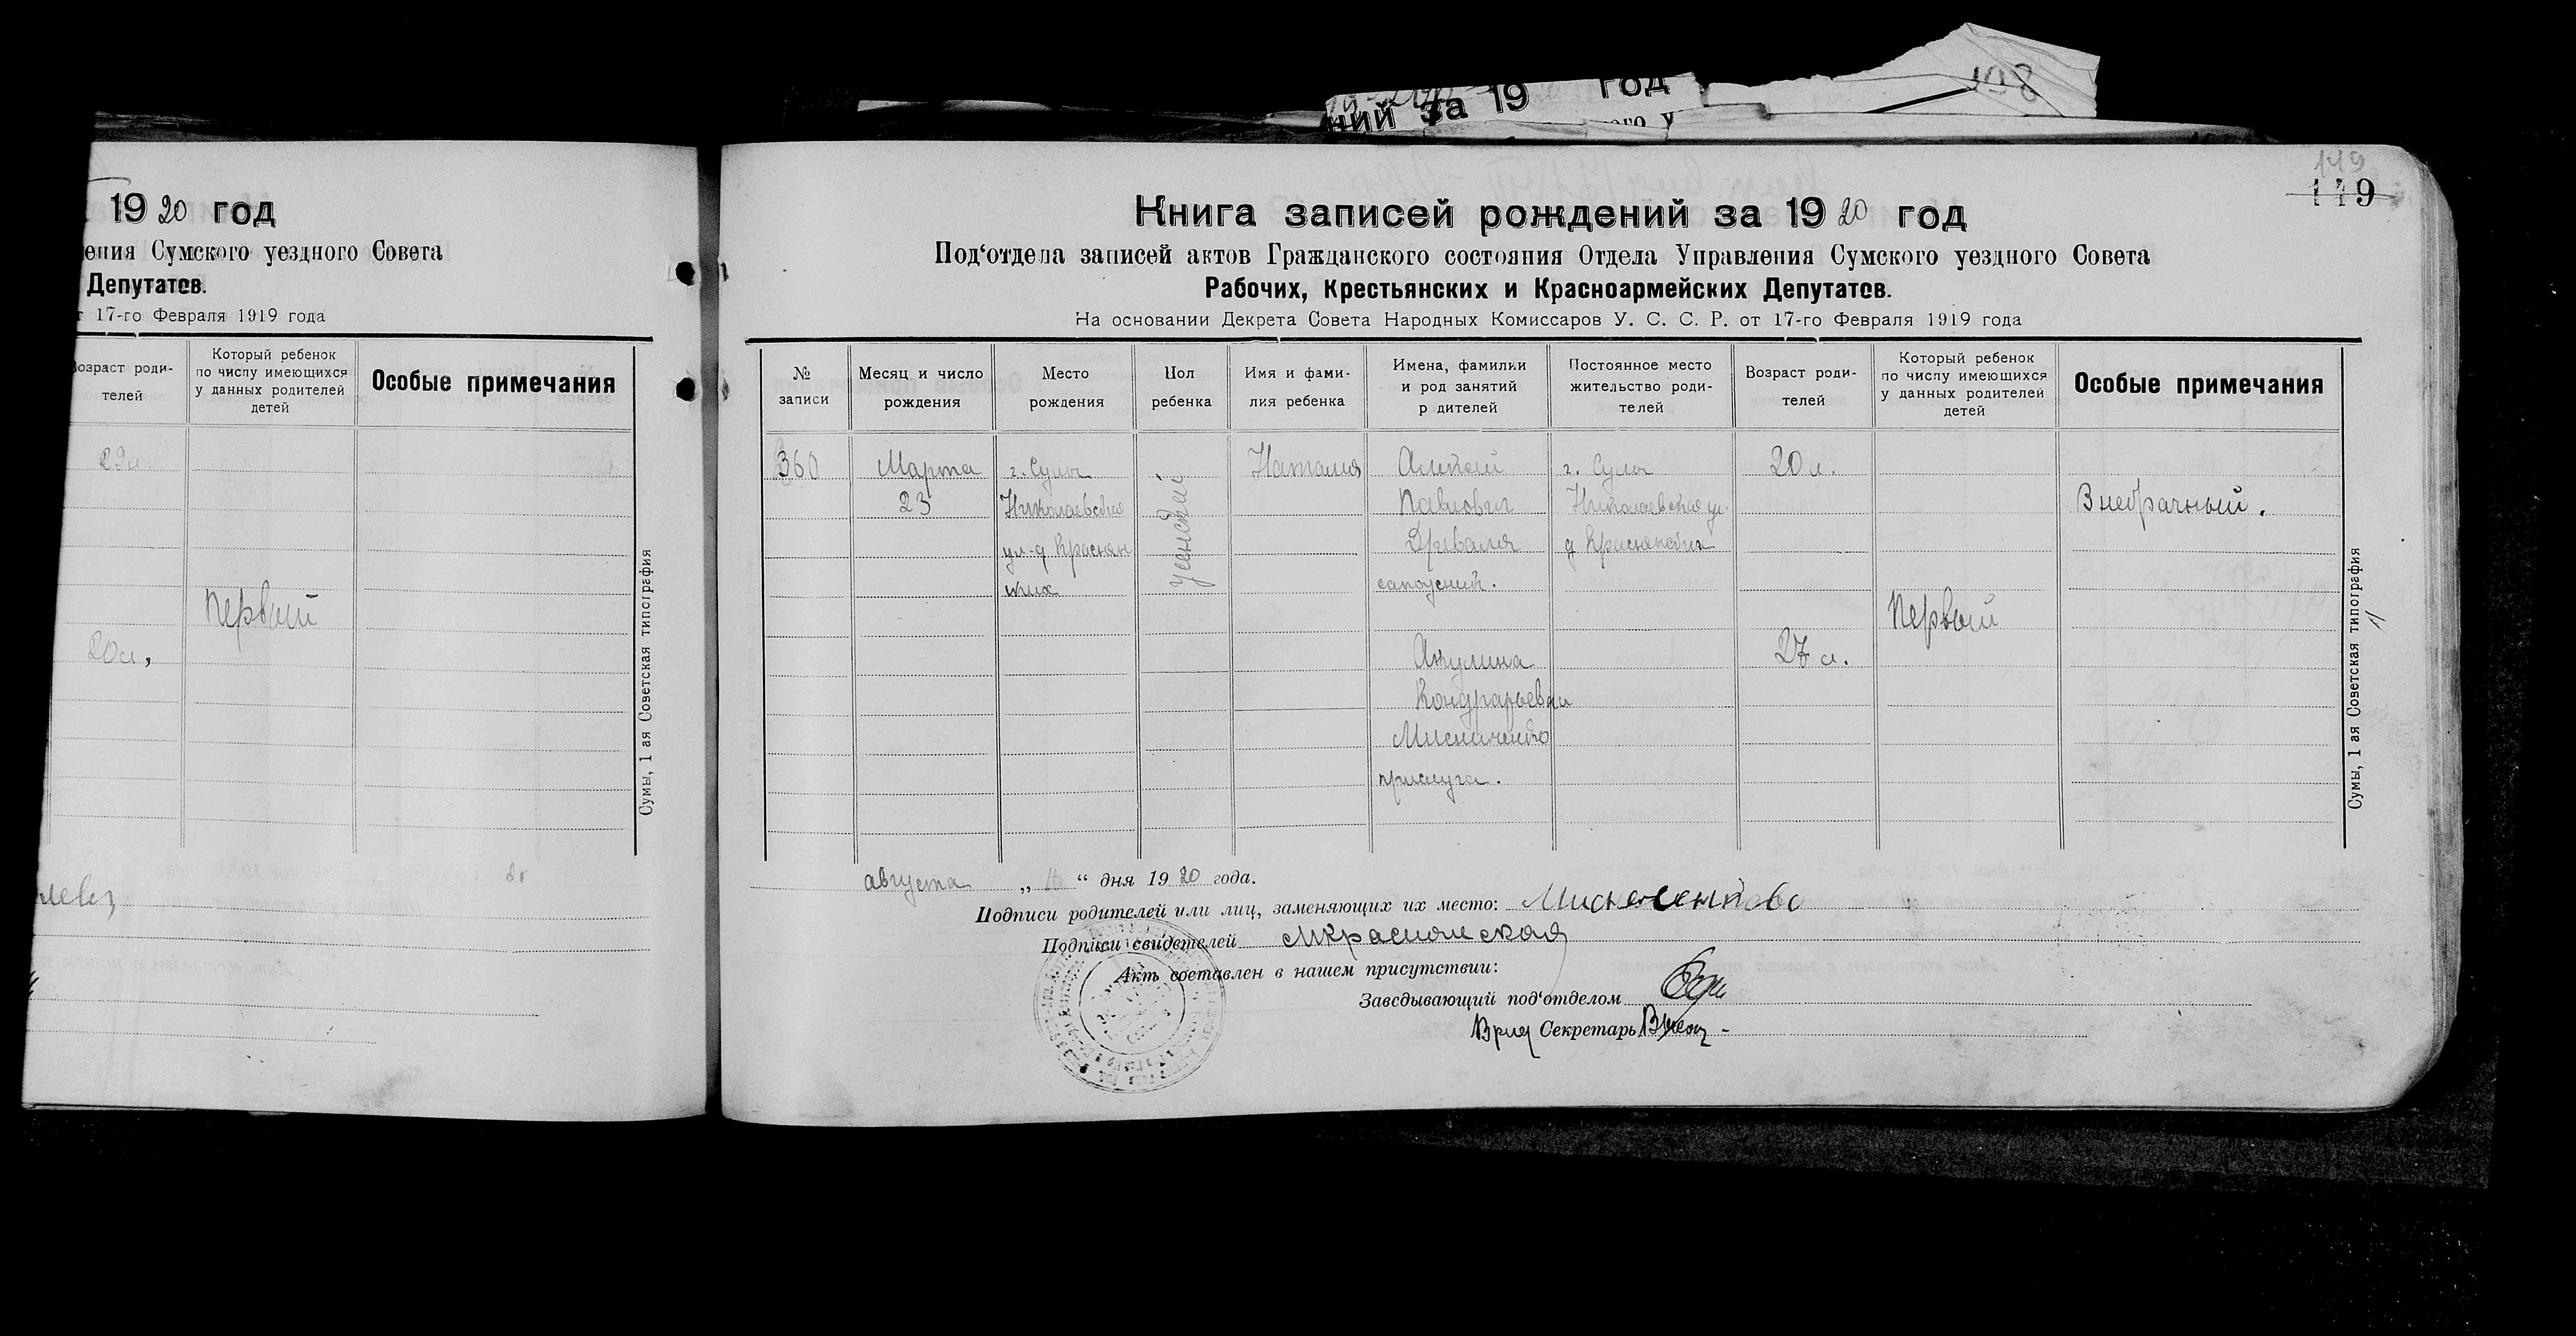 198
ний за 19 год
ого у
19 20 год
ения Сумского уездного Совета
Депутатов.
т 17-го Февраля 1919 года
Возраст роди-
телей
Который ребенок
по числу имеющихся
у данных родителей
детей
Особые примечания
29 л.
Первый
20 л.
Сумы, 1 ая Советская типография
149
119
Книга записей рождений за 19 20 год
Под‘отдела записей актов Гражданского состояния Отдела Управления Сумского уездного Совета
Рабочих, Крестьянских и Красноармейских Депутатов.
На основании Декрета Совета Народных Комиссаров У. С. С. Р. от 17-го Февраля 1919 года
№
записи
Месяц и число
рождения
Место
рождения
Пол
ребенка
Имя и фами-
лия ребенка
Имена, фамилки
и род занятий
р дителей
Постоянное место
жительство роди-
телей
Возраст роди-
телей
Который ребенок
по числу имеющихся
у данных родителей
детей
Особые примечания
360
Марта
23
г. Сумы
Николаевская
ул. д Краснян
ских
женский
Наталия
Алексей
Павлович
Древаля
сапожник.
Акулина
Кондратьевна
Мисниченко
прислуга.
г. Сумы
Николаевская ул.
д Краснянских
20 л.
27 л.
Первый
Внебрачный.
Сумы, 1 ая Советская типография
августа „ “ дня 19 20 года.
Подписи родителей или лиц, заменяющих их место:
Подписи свидетелей
Акт составлен в нашем присутствии:
Заведывающий под‘отделом
Врид Секретарь